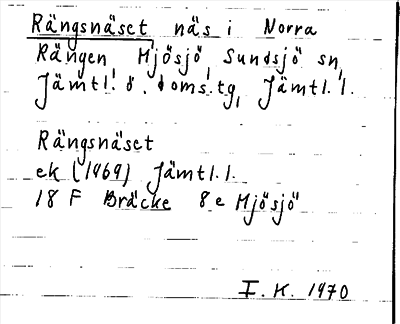 Rängsnäset näs i Norra
Rängen, Mjösjö, Sundsjö sn,
Jämtl. ö. doms.tg, Jämtl. l.
Rängsnäset
ek (1969) Jämtl. l.
18 F Bräcke 8e Mjösjö
I. K. 1970